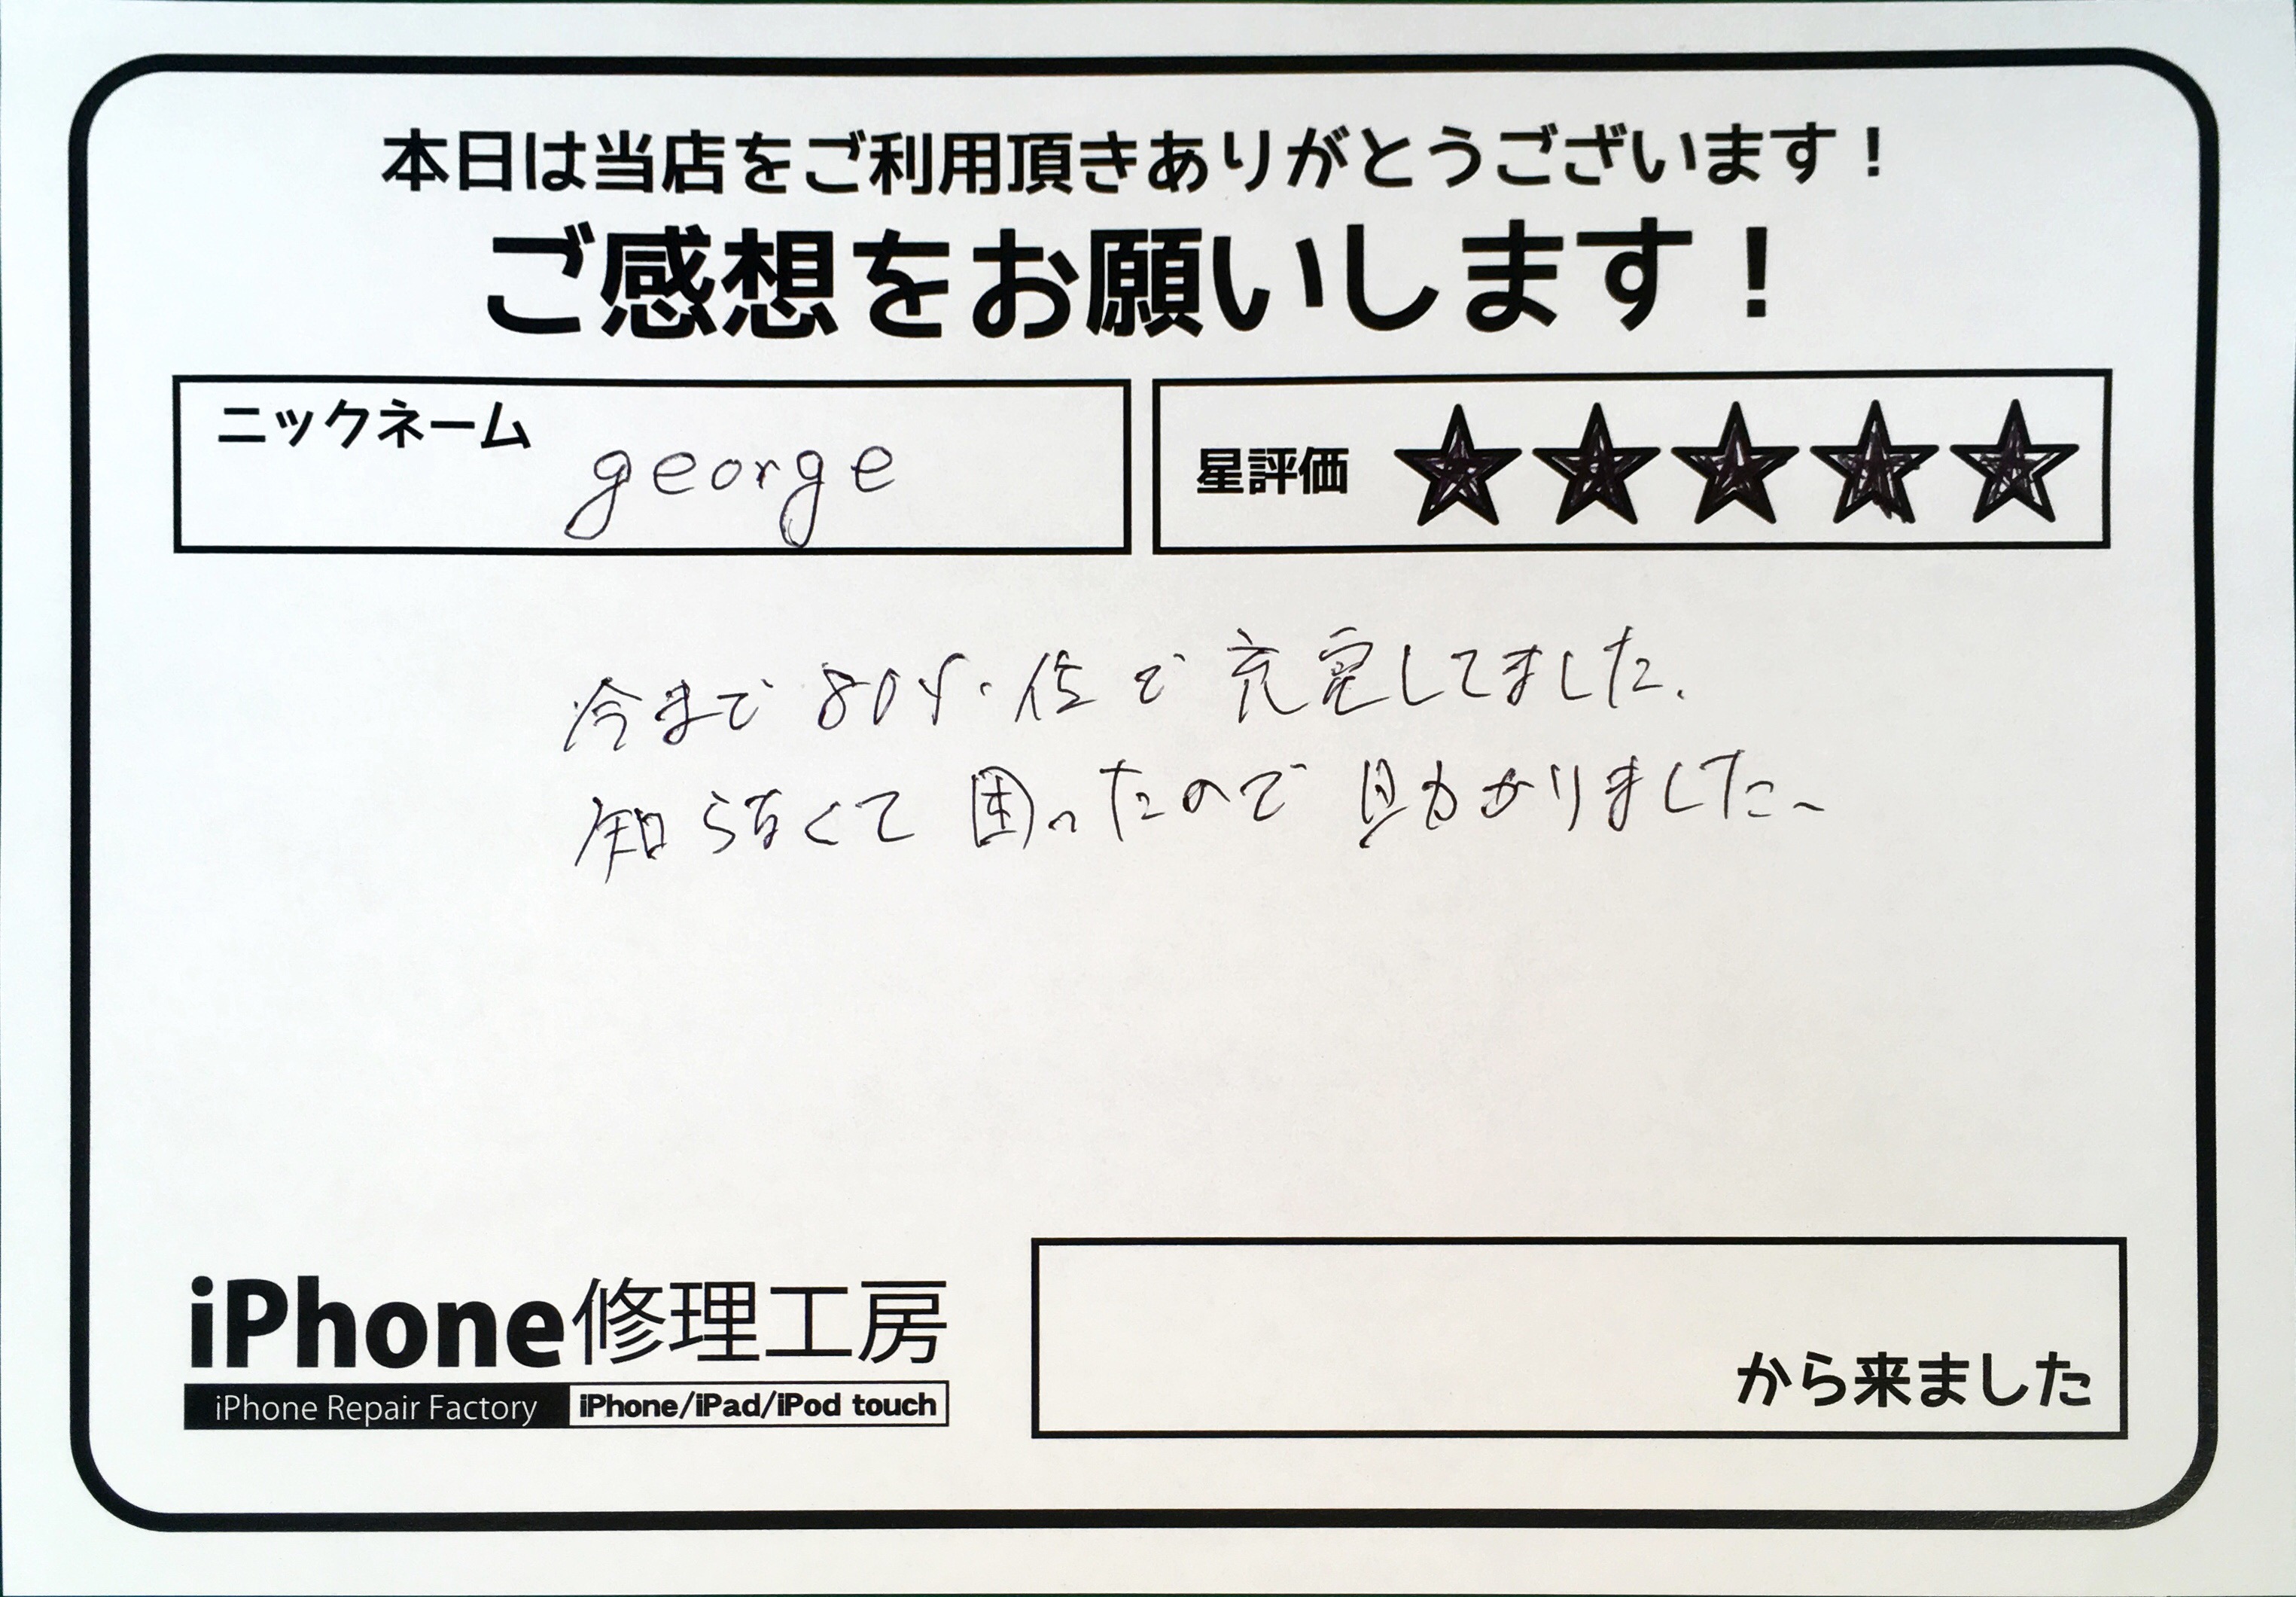 本日は当店をご利用頂きありがとうございます！
ご感想をお願いします！
ニックネーム george
星評価 ★★★★★
今まで80%位で充電してました.
知らなくて困ったので助かりました〜
iPhone修理工房
iPhone Repair Factory iPhone/iPad/iPod touch
から来ました